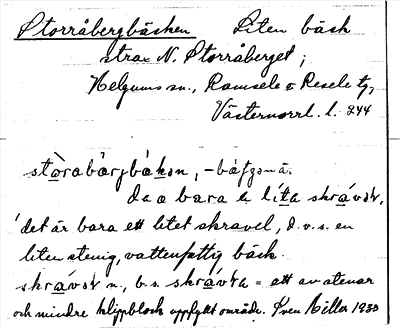 Storråbergbäcken Liten bäck
strax N. Storråberget,
Helgums sn., Ramsele o Resele tg,
Västernorrl. l. 244
stòrabærjbækən, -bæʃʒənä.
da a bara e lita skrávət,
'det är bara ett litet skravel, d.v.s. en
liten stenig, vattenfattig bäck.
skrávət n., b.s. skrávta = ett av stenar
och mindre klippblock uppfyllt område. Sven Miller 1930